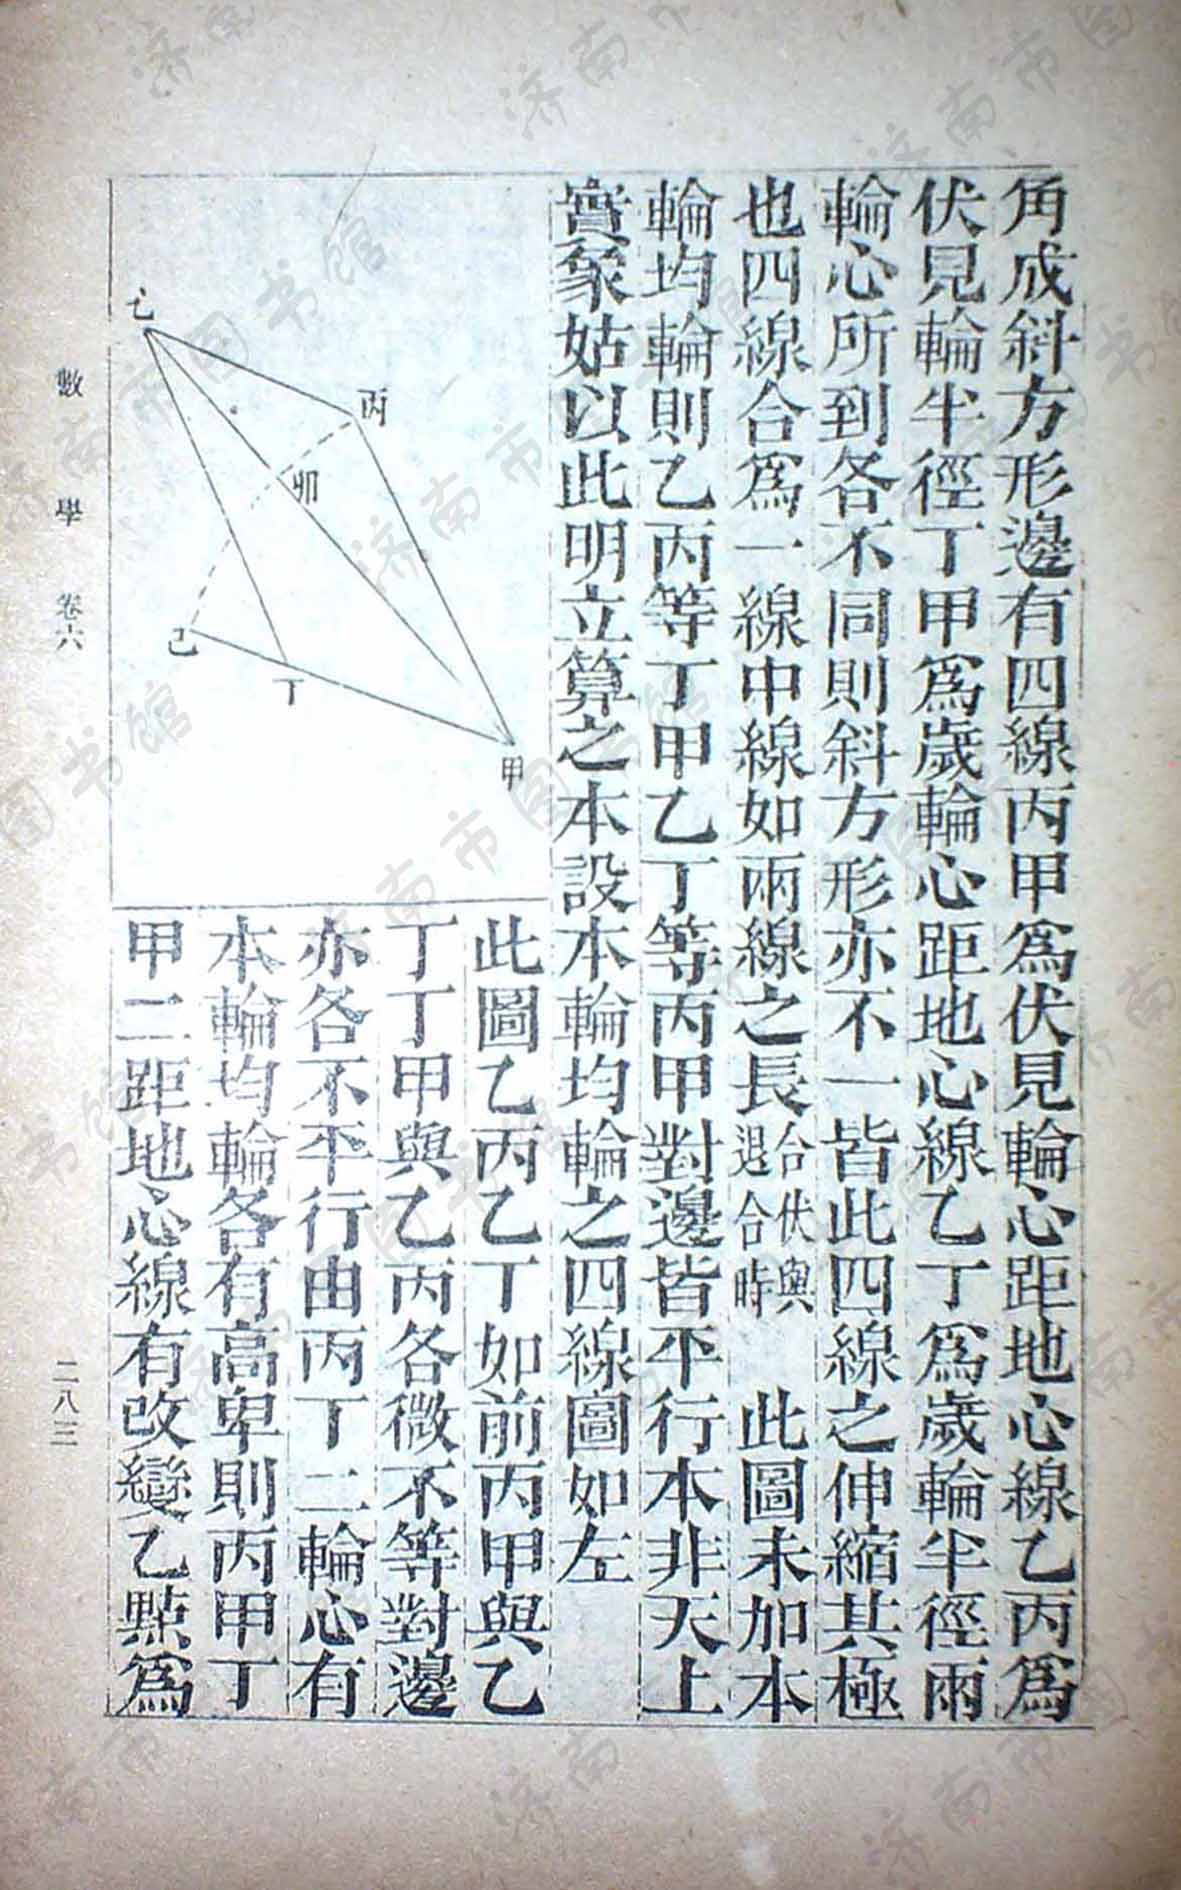 角成斜方形邊有四線丙甲爲伏見輪心距地心線乙丙爲
伏見輪半徑丁甲爲歲輪心距地心線乙丁爲歲輪半徑兩
輪心所到各不同則斜方形亦不一皆此四線之伸縮其極
也四線合爲一線中線如兩線之長合伏與退合時 此圖未加本
輪均輪則乙丙等丁甲乙丁等丙甲對邊皆平行本非天上
實象姑以此明立算之本設本輪均輪之四線圖如左
乙
丙
卯
己
丁
甲
此圖乙丙乙丁如前丙甲與乙
丁丁甲與乙丙各微不等對邊
亦各不平行由丙丁二輪心有
本輪均輪各有高卑則丙甲丁
甲二距地心線有改變乙點爲
數學 卷六
二八三
济南市图书馆